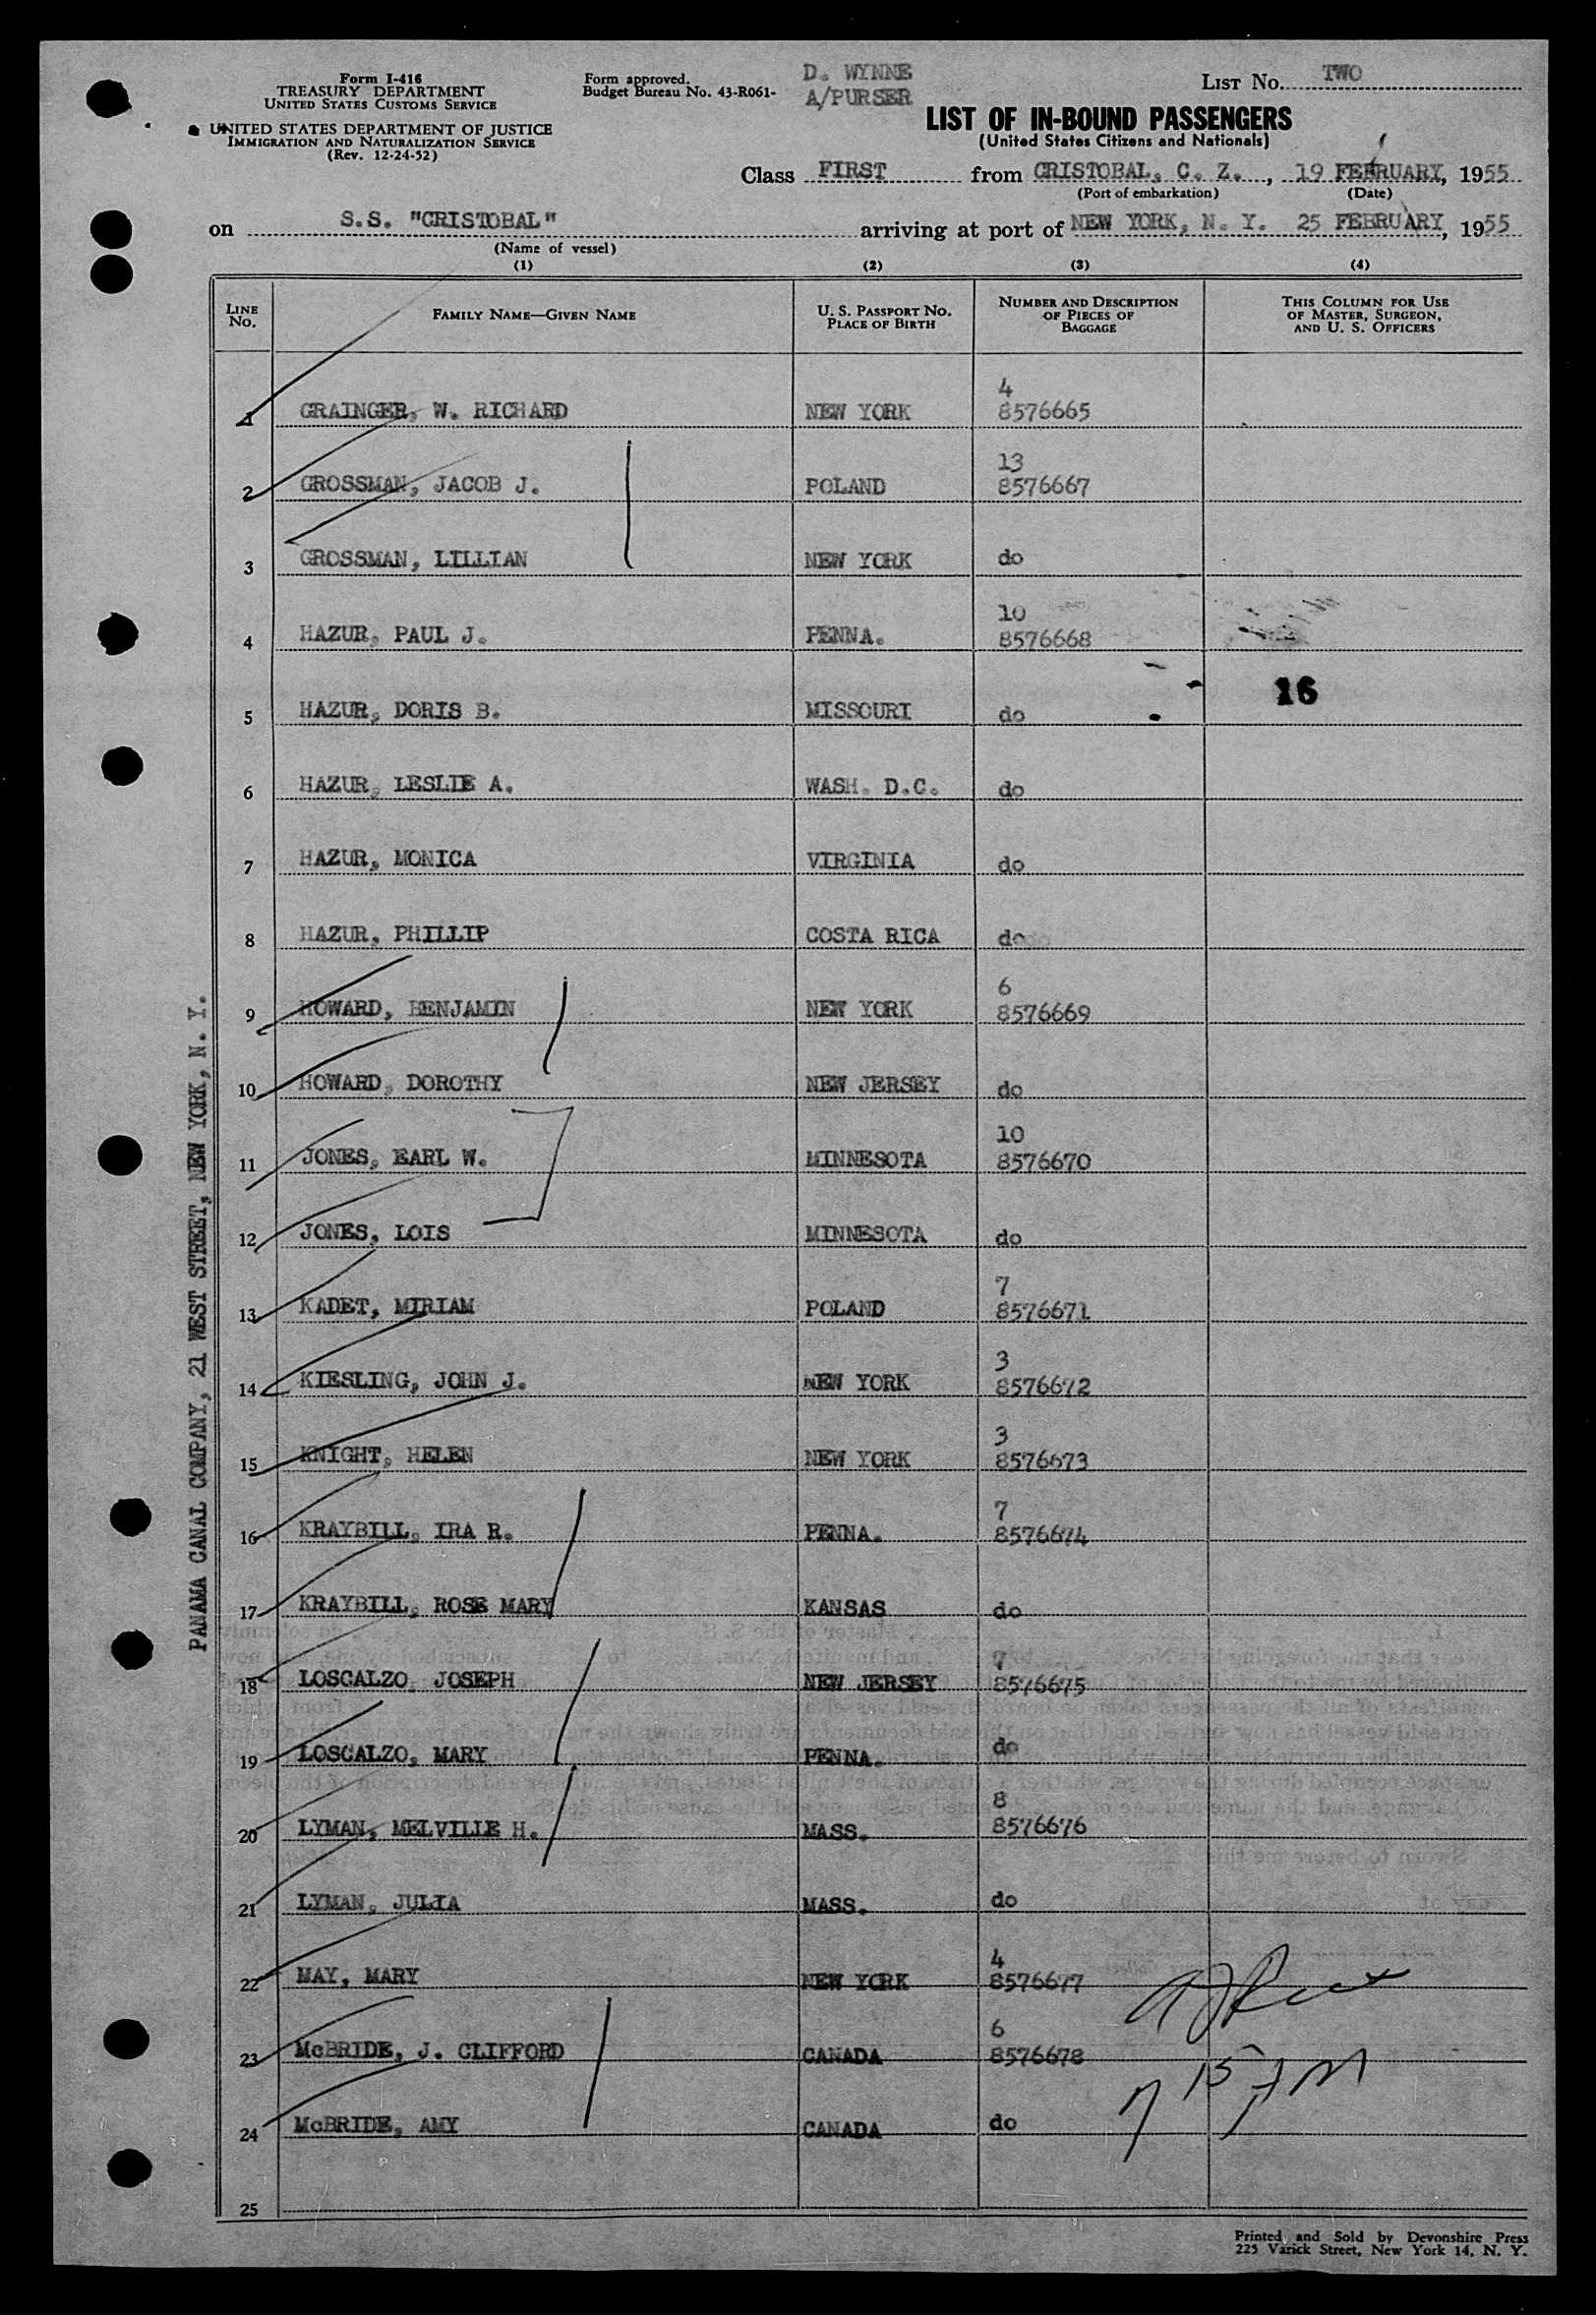 Form I-416
TREASURY DEPARTMENT
UNITED STATES CUSTOMS SERVICE
UNITED STATES DEPARTMENT OF JUSTICE
IMMIGRATION AND NATURALIZATION SERVICE
(Rev. 12-24-52)
Form approved.
Budget Bureau No. 43-R061-
D. WYNNE
A/PURSER
LIST No. TWO
LIST OF IN-BOUND PASSENGERS
(United States Citizens and Nationals)
Class FIRST from CRISTOBAL, C. Z., 19 FEBRUARY, 1955
(Port of embarkation) (Date)
on S.S. "CRISTOBAL" arriving at port of NEW YORK, N. Y. 25 FEBRUARY, 1955
(Name of vessel)
(1) (2) (3) (4)
LINE No. FAMILY NAME—GIVEN NAME U. S. PASSPORT No. PLACE OF BIRTH NUMBER AND DESCRIPTION OF PIECES OF BAGGAGE THIS COLUMN FOR USE OF MASTER, SURGEON, AND U. S. OFFICERS
4
1 GRAINGER, W. RICHARD NEW YORK 8576665
13
2 GROSSMAN, JACOB J. POLAND 8576667
3 GROSSMAN, LILLIAN NEW YORK do
10
4 HAZUR, PAUL J. PENNA. 8576668
16
5 HAZUR, DORIS B. MISSOURI do
6 HAZUR, LESLIE A. WASH. D.C. do
7 HAZUR, MONICA VIRGINIA do
8 HAZUR, PHILLIP COSTA RICA do
6
9 HOWARD, BENJAMIN NEW YORK 8576669
10 HOWARD, DOROTHY NEW JERSEY do
10
11 JONES, EARL W. MINNESOTA 8576670
12 JONES, LOIS MINNESOTA do
7
13 KADET, MIRIAM POLAND 8576671
3
14 KIESLING, JOHN J. NEW YORK 8576672
3
15 KNIGHT, HELEN NEW YORK 8576673
7
16 KRAYBILL, IRA R. PENNA. 8576674
17 KRAYBILL, ROSE MARY KANSAS do
7
18 LOSCALZO, JOSEPH NEW JERSEY 8576675
19 LOSCALZO, MARY PENNA. do
8
20 LYMAN, MELVILLE H. MASS. 8576676
21 LYMAN, JULIA MASS. do
4
22 MAY, MARY NEW YORK 8576677
6
23 McBRIDE, J. CLIFFORD CANADA 8576678
24 McBRIDE, AMY CANADA do
25
PANAMA CANAL COMPANY, 21 WEST STREET, NEW YORK, N. Y.
Printed and Sold by Devonshire Press
225 Varick Street, New York 14, N. Y.